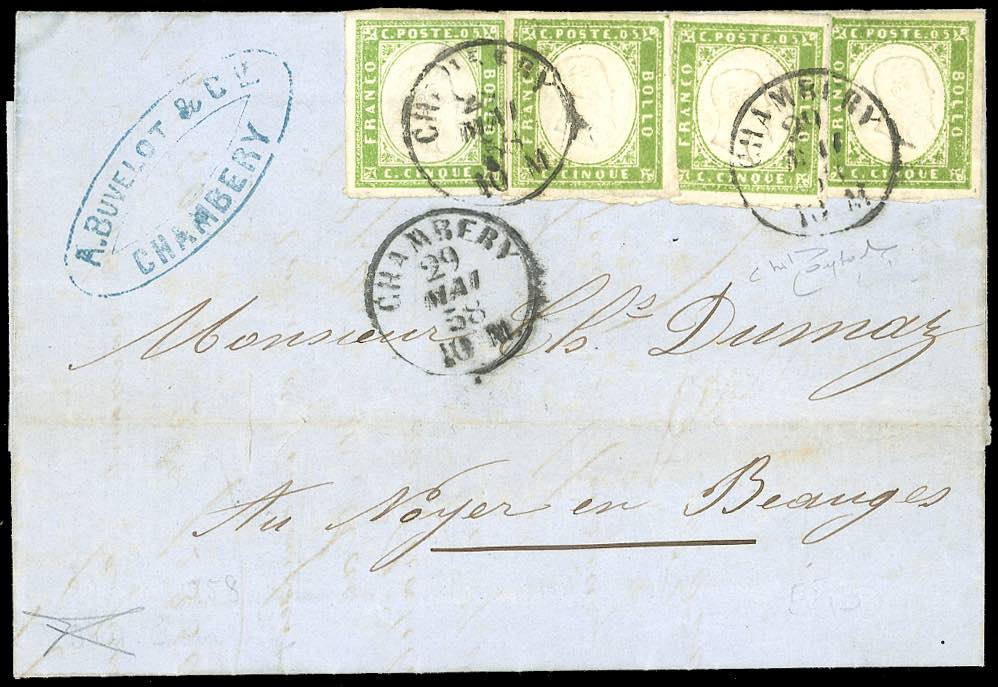 A. BUVELOT & C IE
CHAMBERY
C. POSTE. 05
FRANCO
BOLLO
C. CINQUE
C. POSTE. 05
FRANCO
BOLLO
C. CINQUE
C. POSTE. 05
FRANCO
BOLLO
C. CINQUE
C. POSTE. 05
FRANCO
BOLLO
C. CINQUE
CHAMBERY
29
MAI
58
10 M
CHAMBERY
29
MAI
58
10 M
CHAMBERY
29
MAI
58
10 M
Monsieur Ch.s Dumaz
Au Noyer en Beauges
258